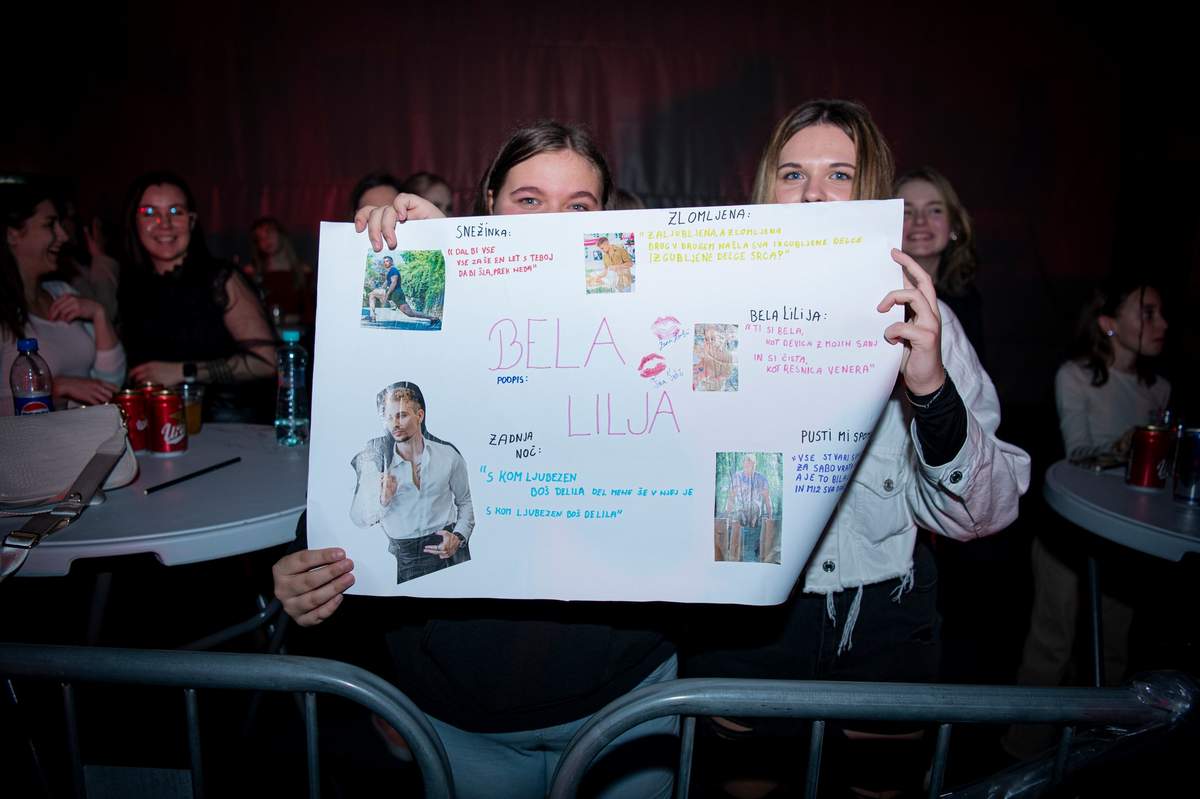 SNEŽINKA:
"DAL BI VSE
VSE ZA ŠE EN LET S TEBOJ
DA BI ŠLA, PREK NEBA"
ZLOMLJENA:
"ZALJUBLJENA, A ZLOMLJENA
DRUG V DRUGEM NAŠLA SVA IZGUBLJENE DELCE
IZGUBLJENE DELCE SRCA?"
BELA
PODPIS:
LILJA
BELA LILIJA:
"TI SI BELA,
KOT DEVICA Z MOJIH SANJ
IN SI ČISTA,
KOT RESNICA VENERA"
ZADNJA
NOČ:
"S KOM LJUBEZEN
BOŠ DELILA DEL MENE ŠE V NJEJ JE
S KOM LJUBEZEN BOŠ DELILA"
PUSTI MI
"VSE STVARI
ZA SABO
A JE TO
IN MIŽ SVA